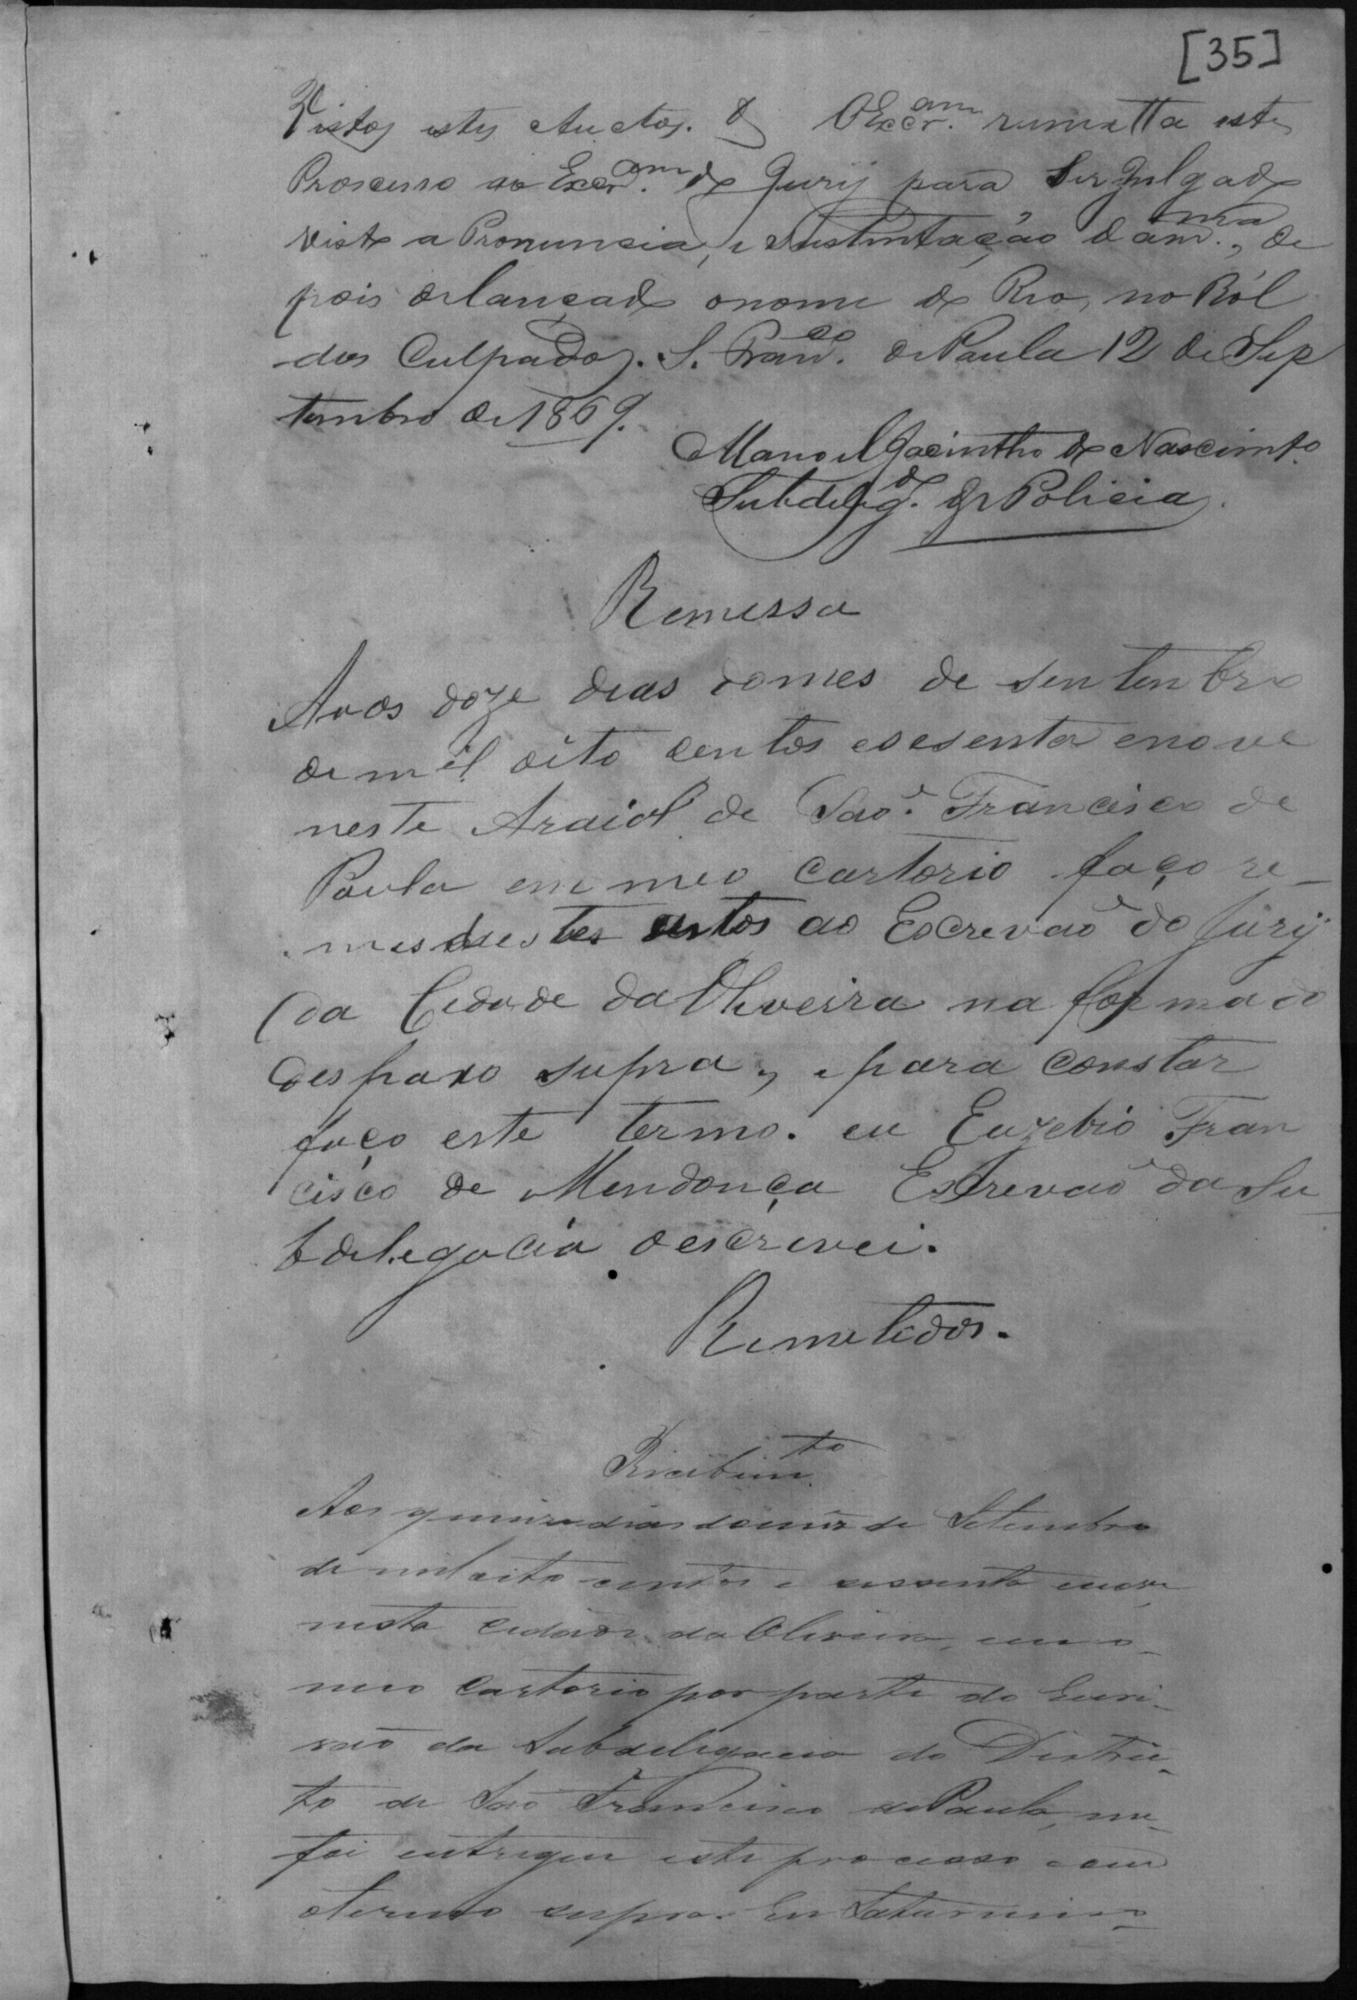 [35]
Vistos estes Auctos. O Escr.am remetta este
Processo ao Escr.am do Jury para ser Julgado
visto a Pronuncia, e Sustentação da m.ma, de
pois de lançado o nome do Reo, no Ról
dos Culpados. S. Fran.co de Paula 12 de Sep
tembro de 1869.
Manoel Jacintho do Nascimto.
Subdeleg.do de Policia
Remessa
Aoos doze dias do mes de sentenbro
de mil oito centos e sesenta e nove
neste Araiol de São Francisco de
Paula em meu cartorio faço re_
mesa destes autos ao Escrevaõ do Jury
da Cidade da Oliveira na forma do
despaxo supra, e para constar
faço este termo. eu Euzebio Fran
cisco de Mendonça Escrevaõ da Su
bdelegacia o escrevei.
Remetidos.
Recebim.to
Aos quinze dias do mez de Setembro
de mil oito centos e sessenta e nove
nesta cidade da Oliveira, em o
meo cartorio por parte do Escri_
vaõ da Subdelegacia do Distric_
to de São Francisco de Paula, me_
foi entregue este processo com
o termo supra. Eu Saturnino